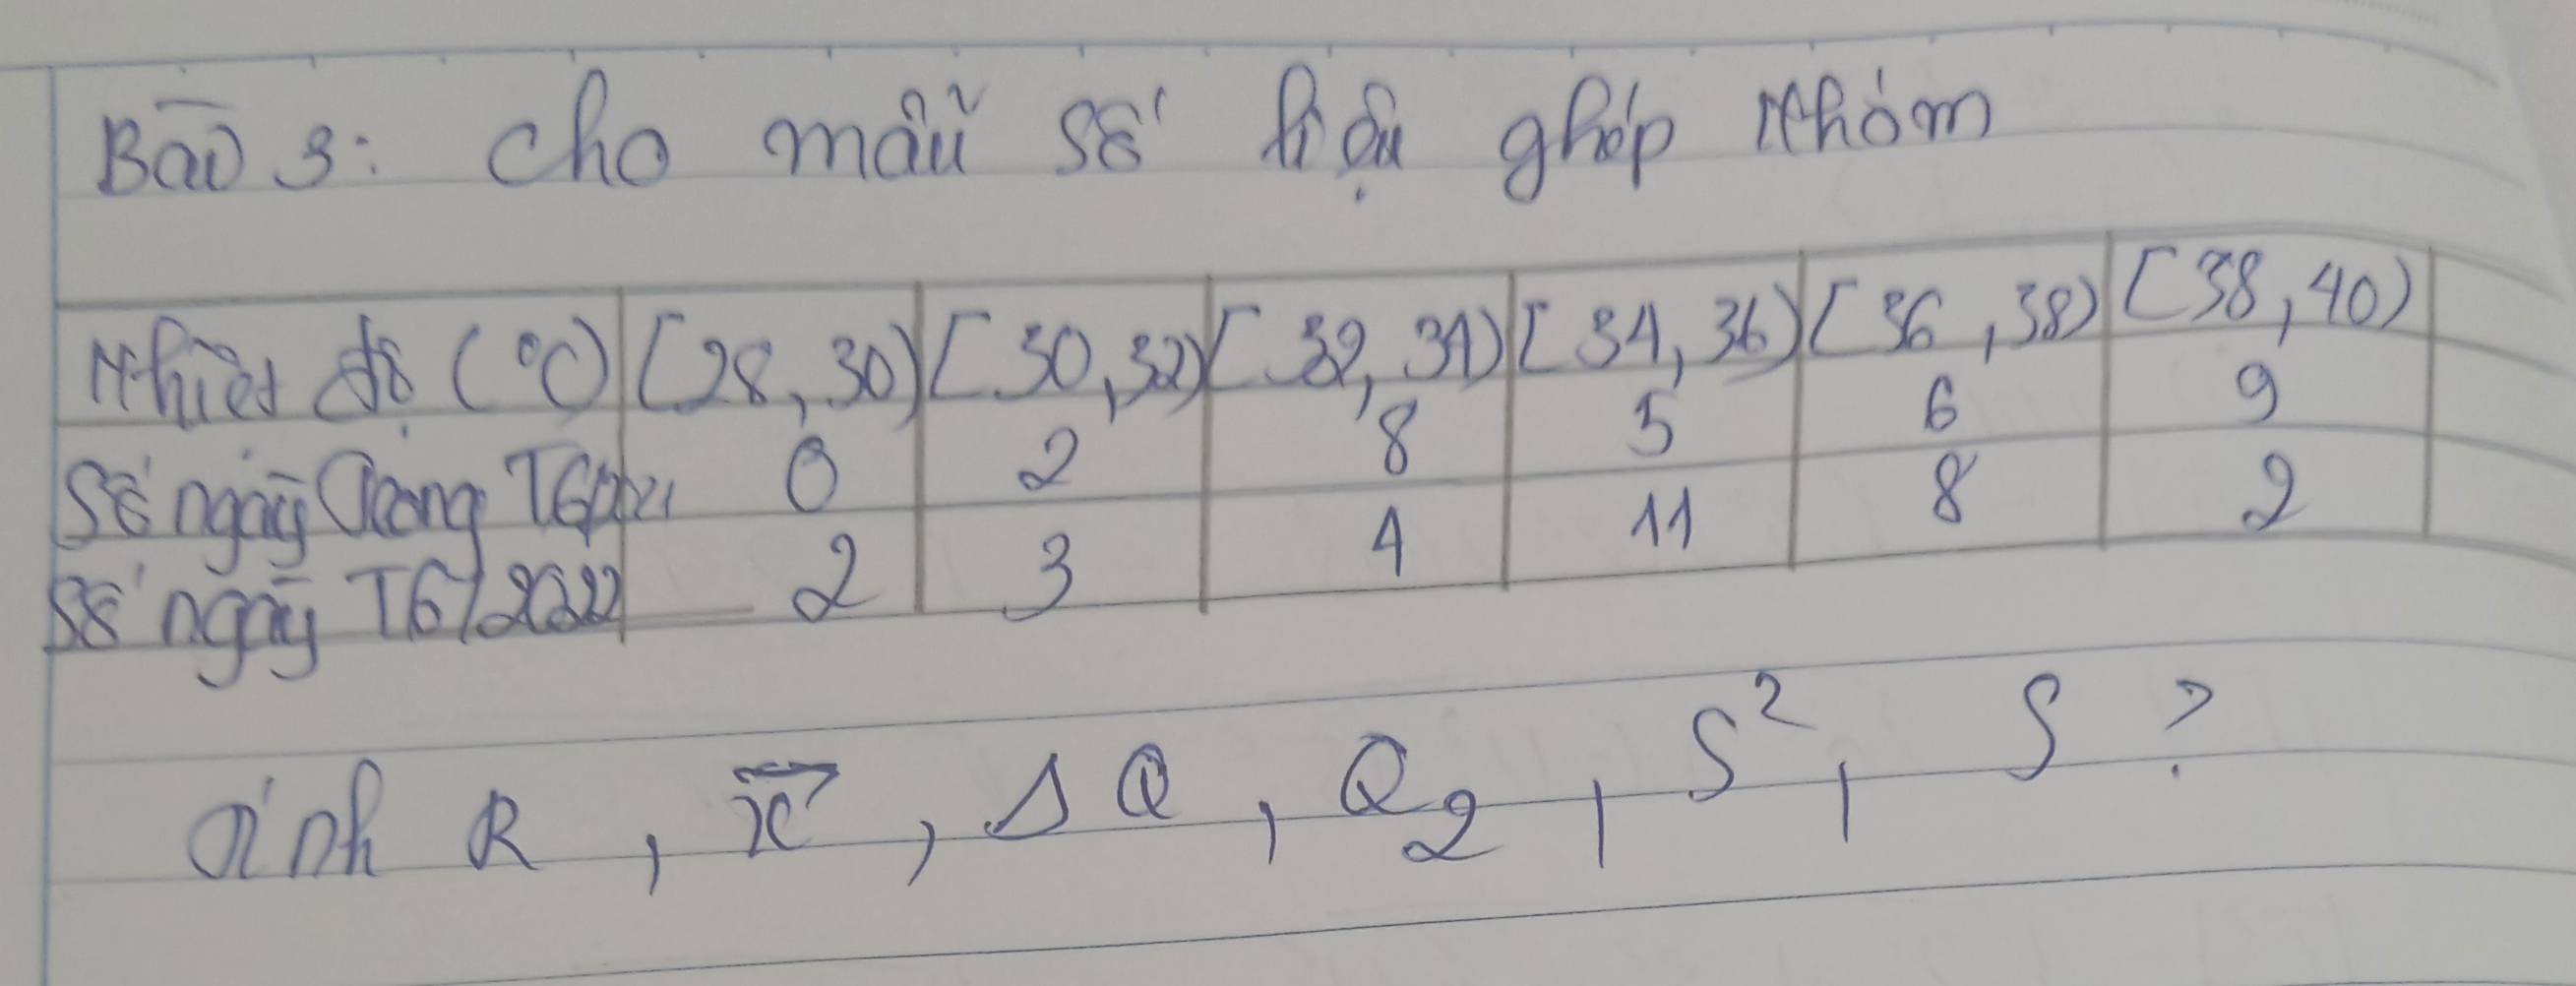 Bài 3: cho mẫu số liệu ghép nhóm
Nhiệt độ (°C) [28, 30) [30, 32) [32, 34) [34, 36) [36, 38) [38, 40)
Số ngày trong T6/2021 0 2 8 5 6 9
Số ngày T6/2022 2 3 4 11 8 2
Tính R, x̄, ΔQ, Q₂, S², S?